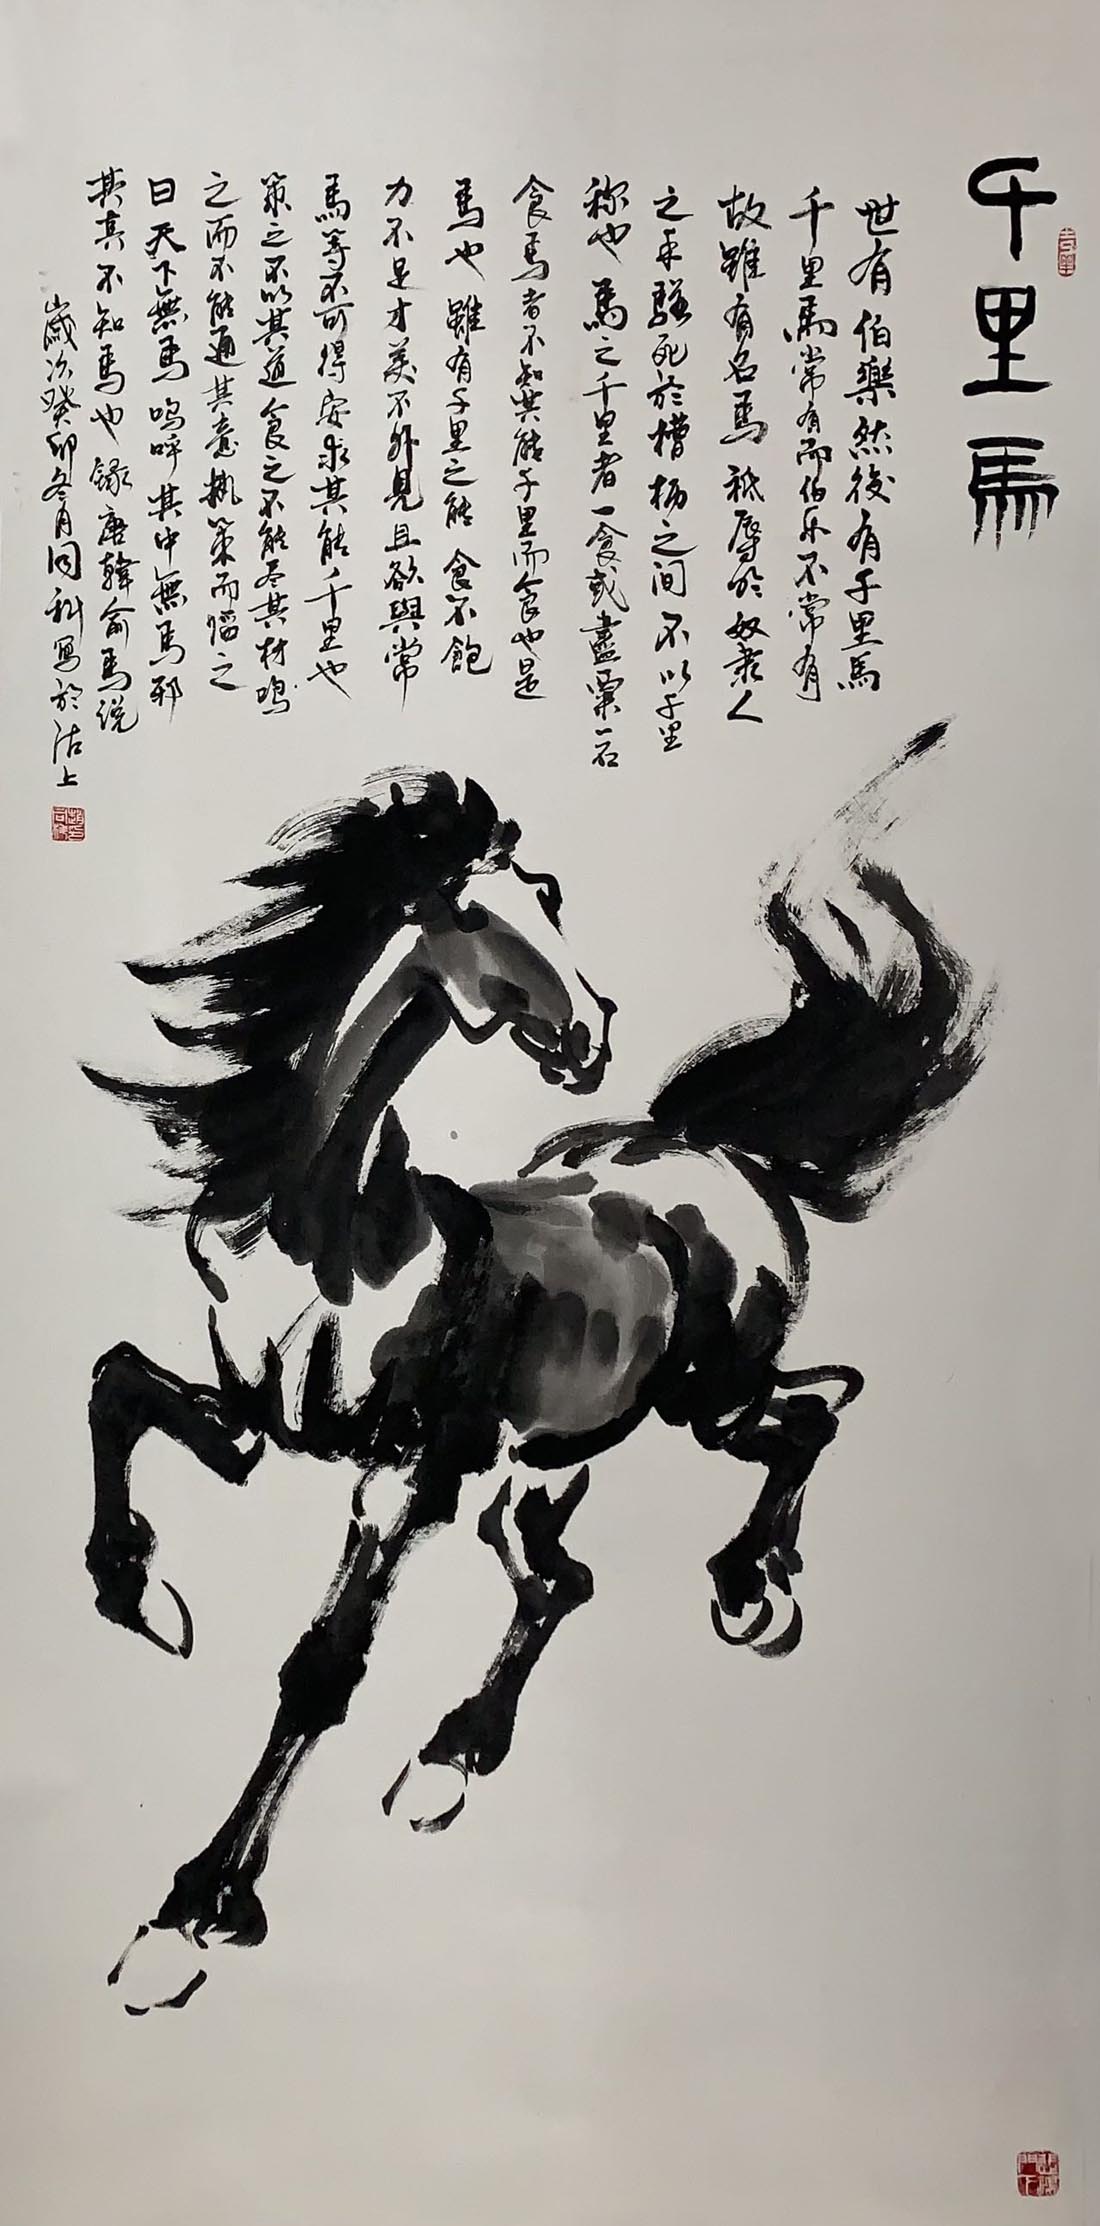 千里馬
世有伯樂然後有千里馬
千里馬常有而伯乐不常有
故雖有名馬祗辱於奴隶人
之手駢死於槽枥之间不以千里
称也馬之千里者一食或盡粟一石
食馬者不知其能千里而食也是
馬也雖有千里之能食不飽
力不足才美不外見且欲與常
馬等不可得安求其能千里也
策之不以其道食之不能尽其材鸣
之而不能通其意執策而临之
曰天下無馬嗚呼其中無馬邪
其真不知馬也录唐韓俞馬说
歲次癸卯冬月同科写於沽上